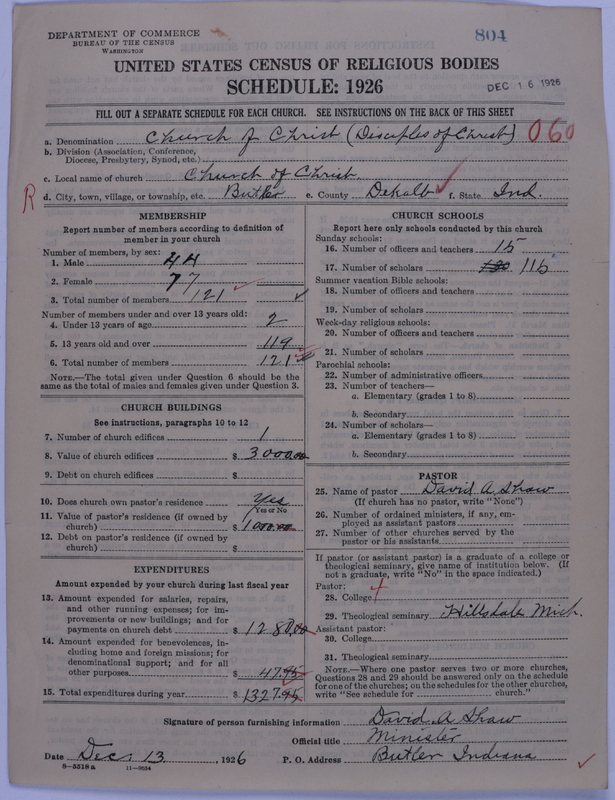 DEPARTMENT OF COMMERCE
BUREAU OF THE CENSUS
WASHINGTON
804
UNITED STATES CENSUS OF RELIGIOUS BODIES
SCHEDULE: 1926
DEC 16 1926
FILL OUT A SEPARATE SCHEDULE FOR EACH CHURCH. SEE INSTRUCTIONS ON THE BACK OF THIS SHEET
a. Denomination Church of Christ (Disciples of Christ) 060
b. Division (Association, Conference,
Diocese, Presbytery, Synod, etc.)
c. Local name of church Church of Christ
R d. City, town, village, or township, etc. Butler e. County Dekalb f. State Ind.
MEMBERSHIP
Report number of members according to definition of
member in your church
Number of members, by sex:
1. Male 44
2. Female 77
3. Total number of members 121
Number of members under and over 13 years old:
4. Under 13 years of age 2
5. 13 years old and over 119
6. Total number of members 121
NOTE.—The total given under Question 6 should be the
same as the total of males and females given under Question 3.
CHURCH BUILDINGS
See instructions, paragraphs 10 to 12
7. Number of church edifices 1
8. Value of church edifices $ 3000.00
9. Debt on church edifices $
10. Does church own pastor's residence Yes
Yes or No
11. Value of pastor's residence (if owned by
church) $ 1000.00
12. Debt on pastor's residence (if owned by
church) $
EXPENDITURES
Amount expended by your church during last fiscal year
13. Amount expended for salaries, repairs,
and other running expenses; for im-
provements or new buildings; and for
payments on church debt $ 1280.00
14. Amount expended for benevolences, in-
cluding home and foreign missions; for
denominational support; and for all
other purposes $ 47.95
15. Total expenditures during year $ 1327.95
CHURCH SCHOOLS
Report here only schools conducted by this church
Sunday schools:
16. Number of officers and teachers 15
17. Number of scholars 115
Summer vacation Bible schools:
18. Number of officers and teachers
19. Number of scholars
Week-day religious schools:
20. Number of officers and teachers
21. Number of scholars
Parochial schools:
22. Number of administrative officers
23. Number of teachers—
a. Elementary (grades 1 to 8)
b. Secondary
24. Number of scholars—
a. Elementary (grades 1 to 8)
b. Secondary
PASTOR
25. Name of pastor David A Shaw
(If church has no pastor, write "None")
26. Number of ordained ministers, if any, em-
ployed as assistant pastors
27. Number of other churches served by the
pastor or his assistants
If pastor (or assistant pastor) is a graduate of a college or
theological seminary, give name of institution below. (If
not a graduate, write "No" in the space indicated.)
Pastor:
28. College
29. Theological seminary Hillsdale Mich.
Assistant pastor:
30. College
31. Theological seminary
NOTE.—Where one pastor serves two or more churches,
Questions 28 and 29 should be answered only on the schedule
for one of the churches; on the schedules for the other churches,
write "See schedule for church."
Signature of person furnishing information David A Shaw
Official title Minister
Date Dec 13, 1926 P. O. Address Butler Indiana
8—5518a 11—9554